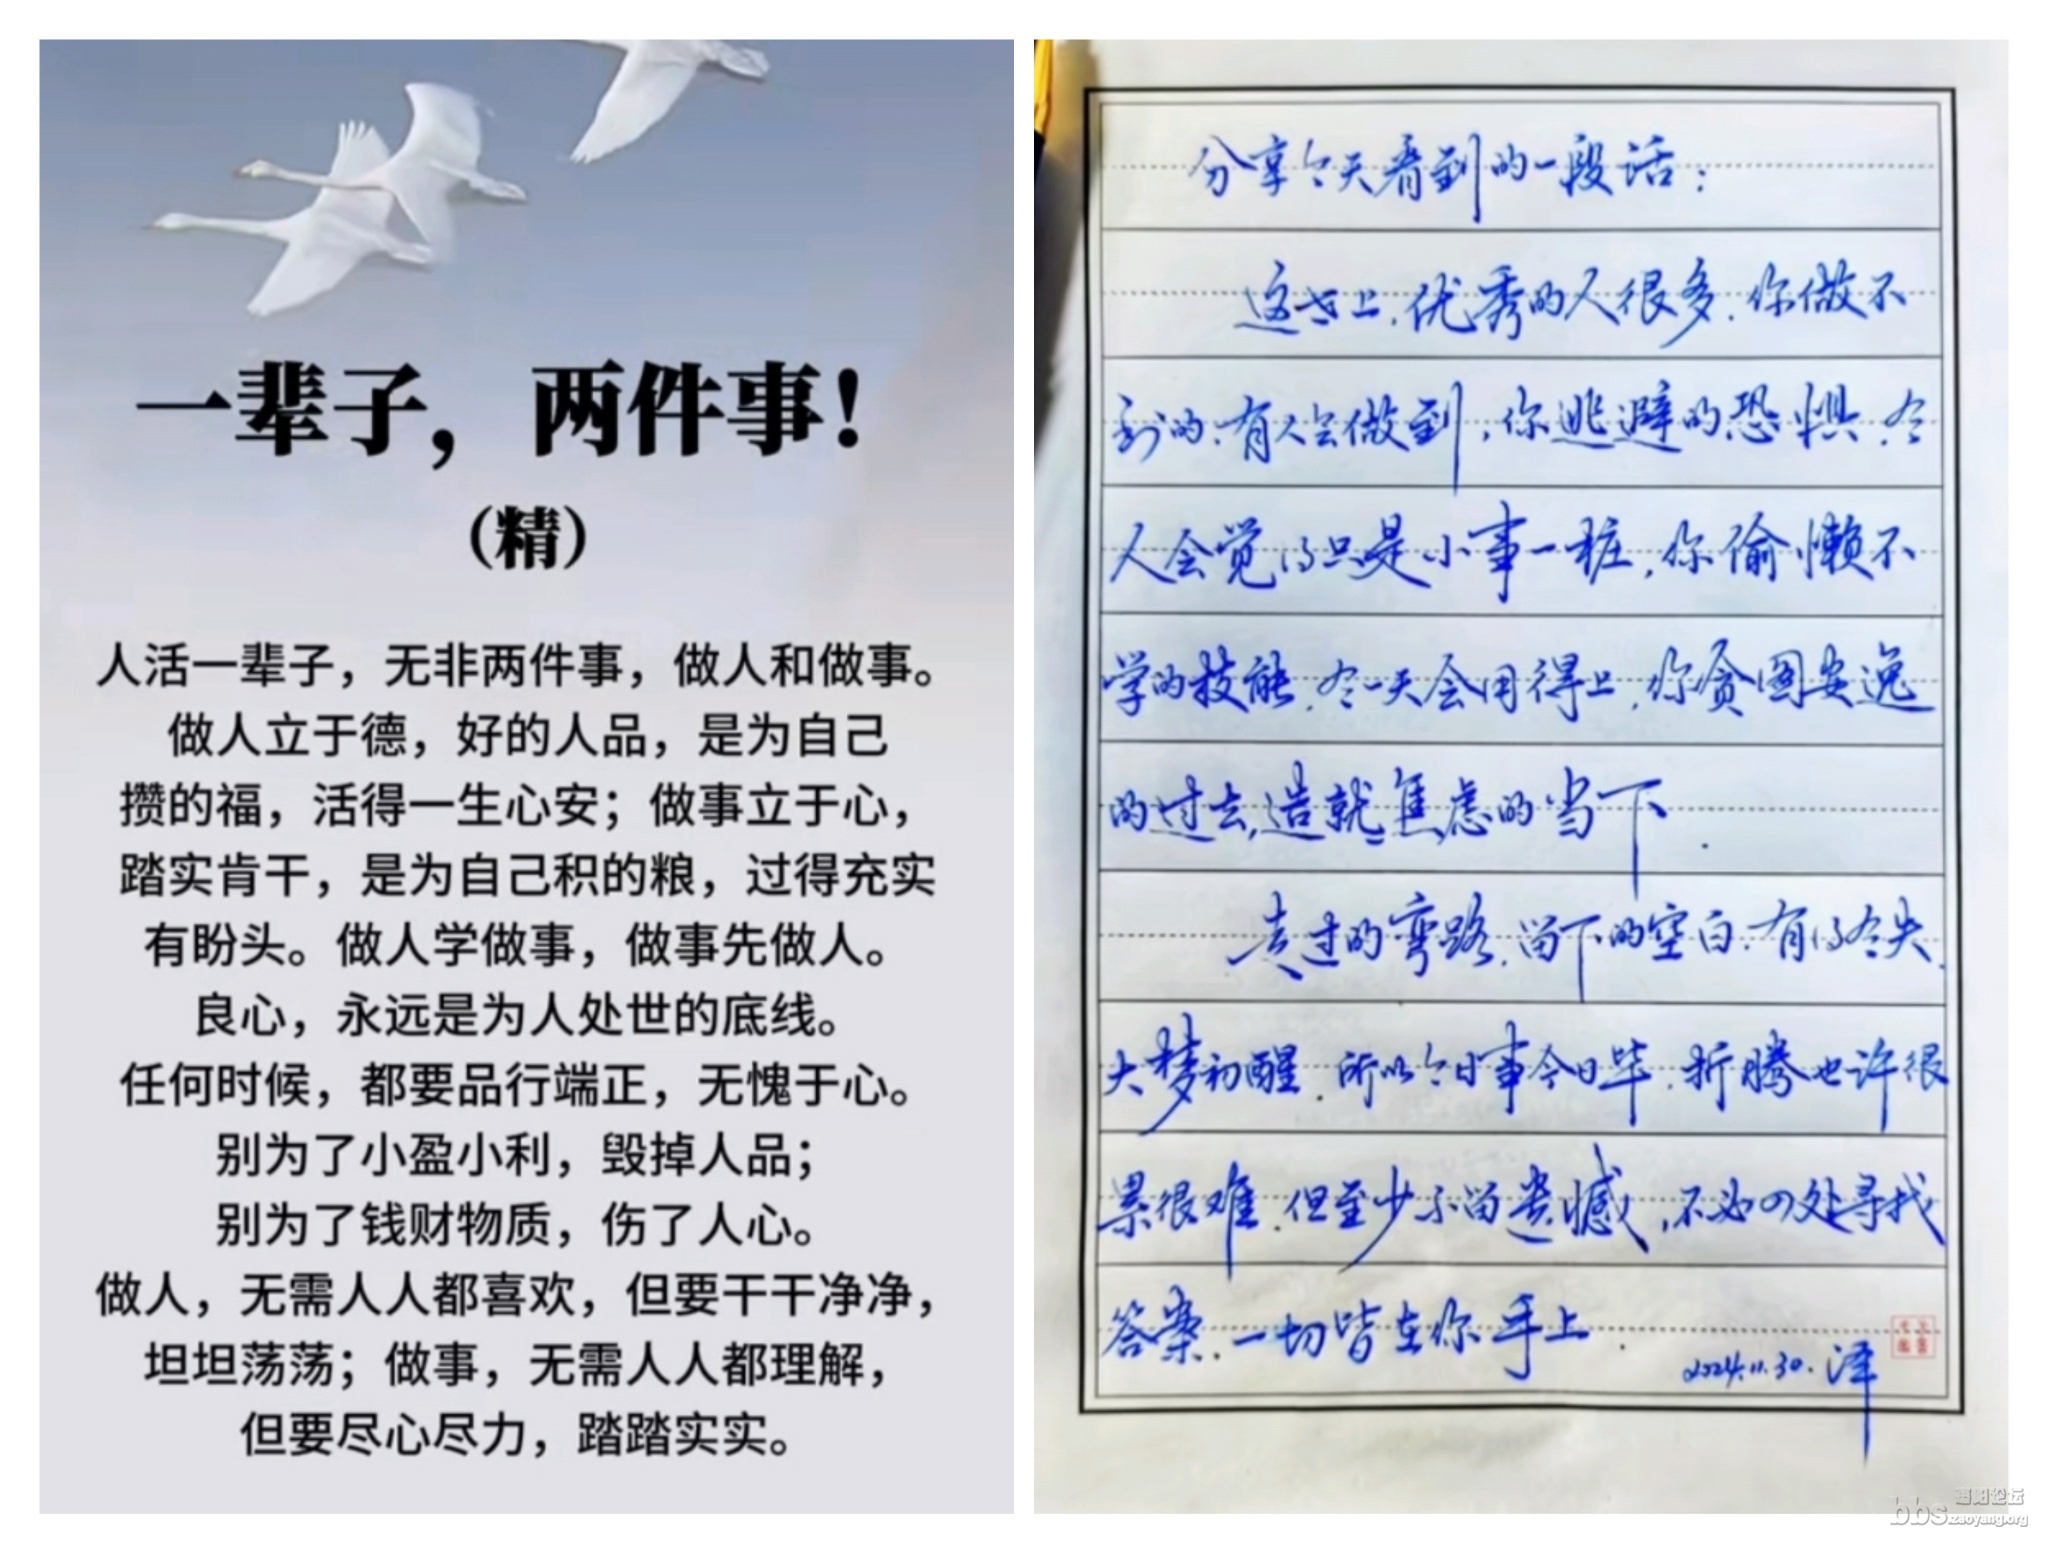 一辈子，两件事！
（精）
人活一辈子，无非两件事，做人和做事。
做人立于德，好的人品，是为自己
攒的福，活得一生心安；做事立于心，
踏实肯干，是为自己积的粮，过得充实
有盼头。做人学做事，做事先做人。
良心，永远是为人处世的底线。
任何时候，都要品行端正，无愧于心。
别为了小盈小利，毁掉人品；
别为了钱财物质，伤了人心。
做人，无需人人都喜欢，但要干干净净，
坦坦荡荡；做事，无需人人都理解，
但要尽心尽力，踏踏实实。
分享今天看到的一段话：
这世上，优秀的人很多，你做不
到的，有人会做到，你逃避的恐惧，令
人会觉得只是小事一桩，你偷懒不
学的技能，总一天会用得上，你贪图安逸
的过去，造就焦虑的当下.
走过的弯路，留下的空白，有得有失，
大梦初醒，所以今日事今日毕，折腾也许很
累很难，但至少不留遗憾，不必四处寻找
答案，一切皆在你手上.
2024.11.30. 泽
枣阳论坛
bbs.zaoyang.org